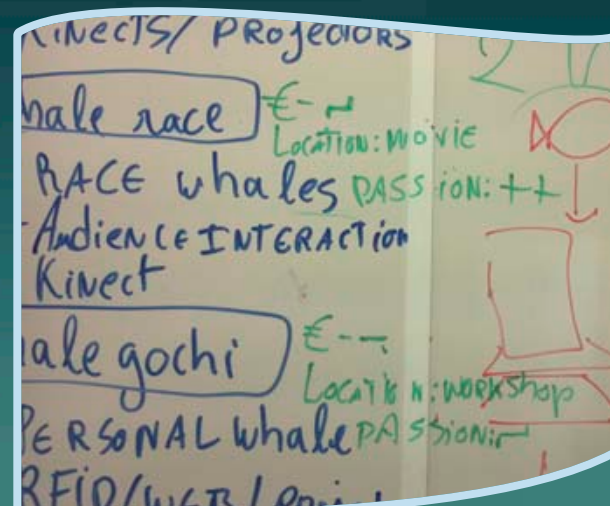 KINECTS/ PROJECTORS
hale race €-
LOCATION: MOVIE
RACE whales PASSION: ++
- AUDIENCE INTERACTION
Kinect
ale gochi €--
LOCATION: WORKSHOP
PERSONAL whale PASSION:
RFID/